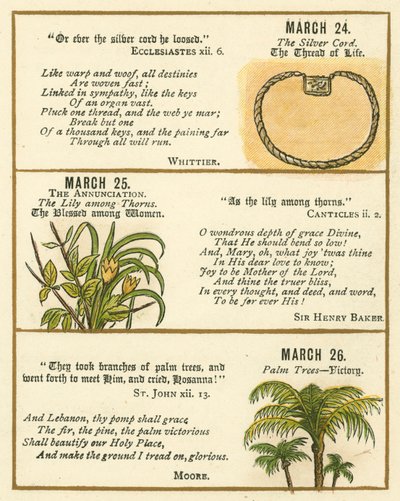 "Or ever the silver cord be loosed."
ECCLESIASTES xii. 6.
Like warp and woof, all destinies
Are woven fast;
Linked in sympathy, like the keys
Of an organ vast.
Pluck one thread, and the web ye mar;
Break but one
Of a thousand keys, and the paining jar
Through all will run.
WHITTIER.
MARCH 24.
The Silver Cord.
The Thread of Life.
MARCH 25.
THE ANNUNCIATION.
The Lily among Thorns.
The Blessed among Women.
"As the lily among thorns."
CANTICLES ii. 2.
O wondrous depth of grace Divine,
That He should bend so low!
And, Mary, oh, what joy 'twas thine
In His dear love to know;
Joy to be Mother of the Lord,
And thine the truer bliss,
In every thought, and deed, and word,
To be for ever His!
SIR HENRY BAKER.
"They took branches of palm trees, and
went forth to meet Him, and cried, Hosanna!"
ST. JOHN xii. 13.
And Lebanon, thy pomp shall grace
The fir, the pine, the palm victorious
Shall beautify our Holy Place,
And make the ground I tread on, glorious.
MOORE.
MARCH 26.
Palm Trees—Victory.